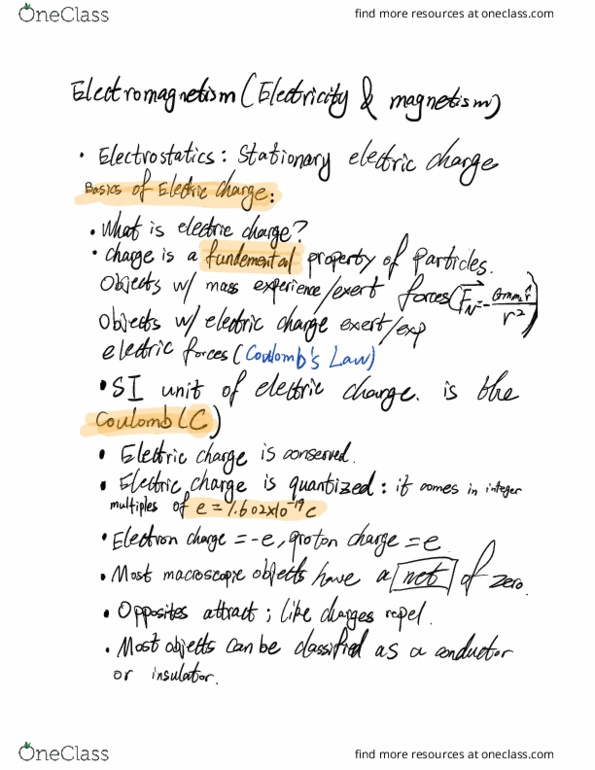 OneClass
find more resources at oneclass.com
Electromagnetism (Electricity & magnetism)
• Electrostatics: Stationary electric charge
Basics of Electric Charge:
• What is electric charge?
• charge is a fundemental property of Particles.
Objects w/ mass experience/exert forces (F⃗N = - Gmm₂r̂/r²)
Objects w/ electric charge exert/exp
electric forces (Coulomb's Law)
• SI unit of electric charge. is the
Coulomb (C)
• Electric charge is conserved.
• Electric charge is quantized: it comes in integer
multiples of e = 1.602x10⁻¹⁹ C
• Electron charge = -e, proton charge = e
• Most macroscopic objects have a net of zero.
• Opposites attract; like charges repel.
• Most objects can be classified as a conductor
or insulator.
OneClass
find more resources at oneclass.com